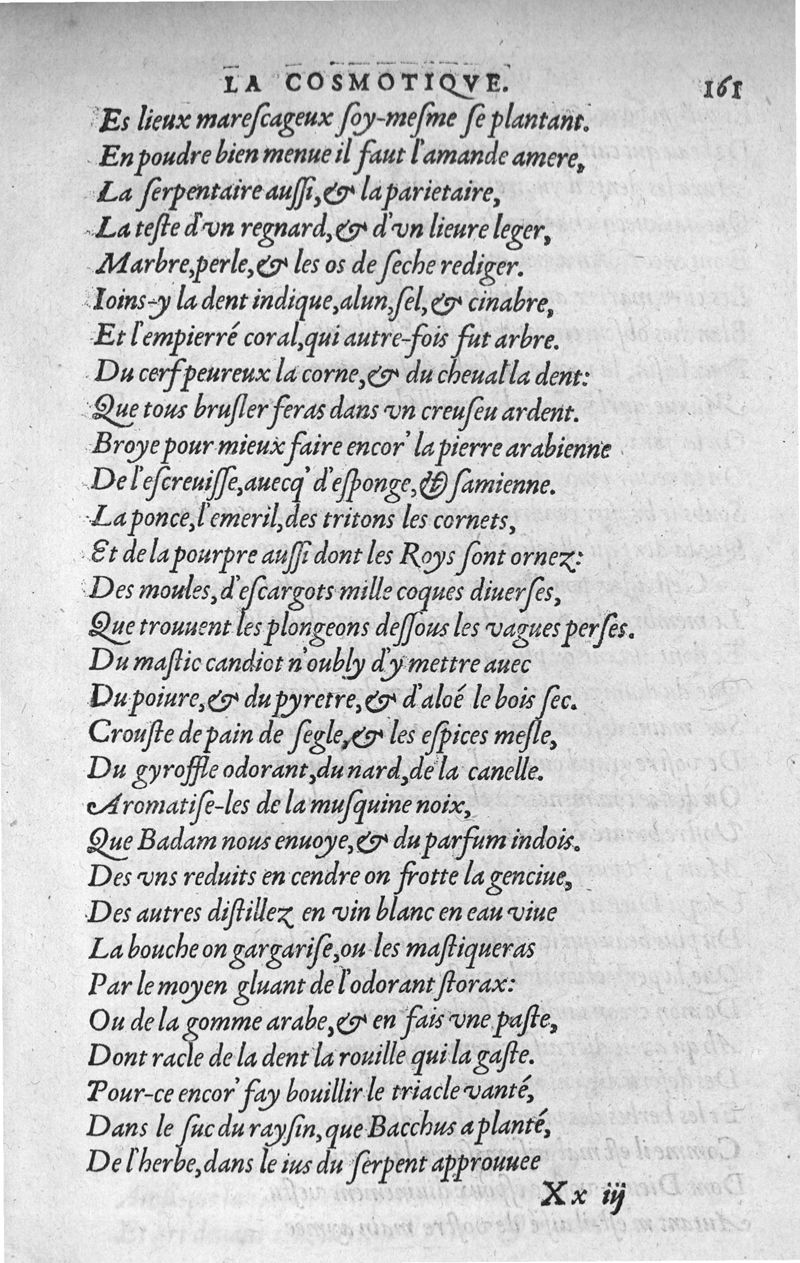 LA COSMOTIQVE. 161
Es lieux mareſcageux ſoy-meſme ſe plantant.
En poudre bien menue il faut l'amande amere,
La ſerpentaire auſſi, & la parietaire,
La teſte d'vn regnard, & d'vn lieure leger,
Marbre, perle, & les os de ſeche rediger.
Ioins-y la dent indique, alun, ſel, & cinabre,
Et l'empierré coral, qui autre-fois fut arbre.
Du cerf peureux la corne, & du cheual la dent:
Que tous bruſler feras dans vn creuſeu ardent.
Broye pour mieux faire encor' la pierre arabienne
De l'eſcreuiſſe, auecq' d'eſponge, & ſamienne.
La ponce, l'emeril, des tritons les cornets,
Et de la pourpre auſſi dont les Roys ſont ornez:
Des moules, d'eſcargots mille coques diuerſes,
Que trouuent les plongeons deſſous les vagues perſes.
Du maſtic candiot n'oubly d'y mettre auec
Du poiure, & du pyretre, & d'aloé le bois ſec.
Crouſte de pain de ſegle, & les eſpices meſle,
Du gyroffle odorant, du nard, de la canelle.
Aromatiſe-les de la muſquine noix,
Que Badam nous enuoye, & du parfum indois.
Des vns reduits en cendre on frotte la genciue,
Des autres diſtillez en vin blanc en eau viue
La bouche on gargariſe, ou les maſtiqueras
Par le moyen gluant de l'odorant ſtorax:
Ou de la gomme arabe, & en fais vne paſte,
Dont racle de la dent la rouille qui la gaſte.
Pour-ce encor' fay bouillir le triacle vanté,
Dans le ſuc du rayſin, que Bacchus a planté,
De l'herbe, dans le ius du ſerpent approuuee
Xx iij